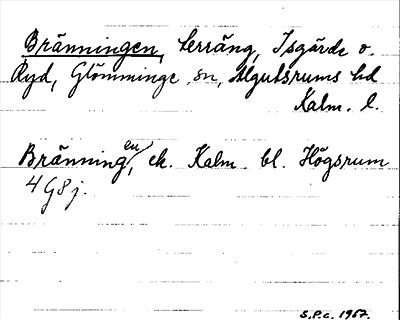 Bränningen, terräng, Isgärde o.
Ryd, Glömminge sn, Algutsrums hd
Kalm. l.
Bränningen, ek. Kalm bl. Högsrum
4 G8j.
S.P.c. 1967.